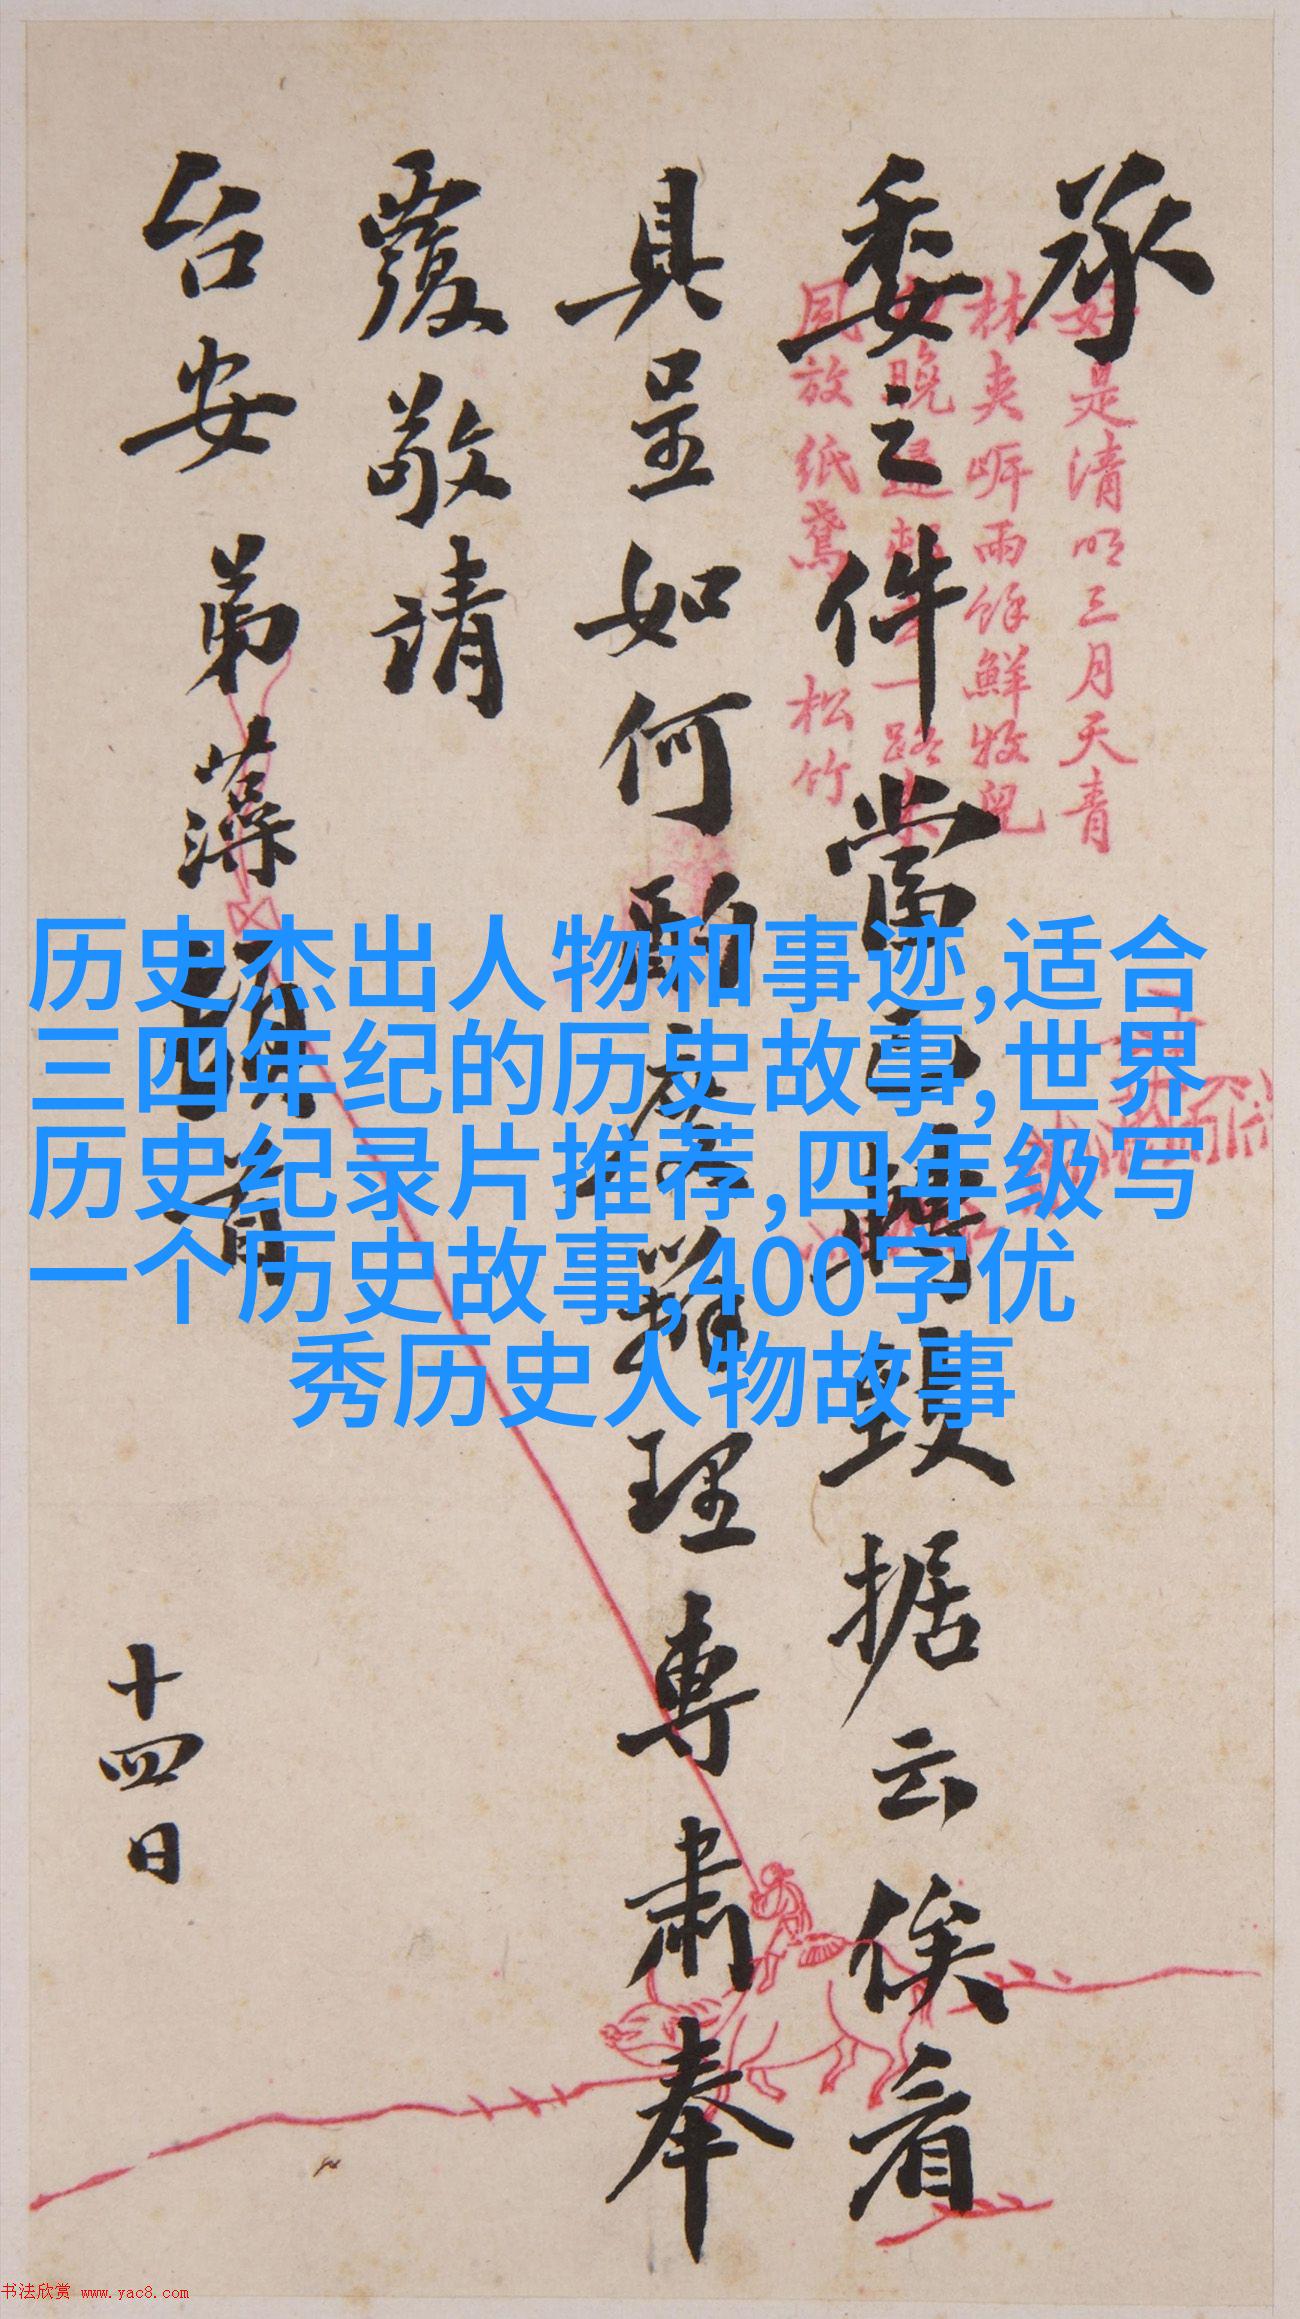 承
委之件當已轉致據云俟看
具呈如何酌度辦理專肅奉
覆敬請
台安 弟藻頓首
十四日
好是清明三月天青
林夾岍雨餘鮮牧兒
晚
同放紙鳶 松竹
历史杰出人物和事迹,适合
三四年纪的历史故事,世界
历史纪录片推荐,四年级写
一个历史故事,400字优
秀历史人物故事
书法欣赏 www.yac8.com